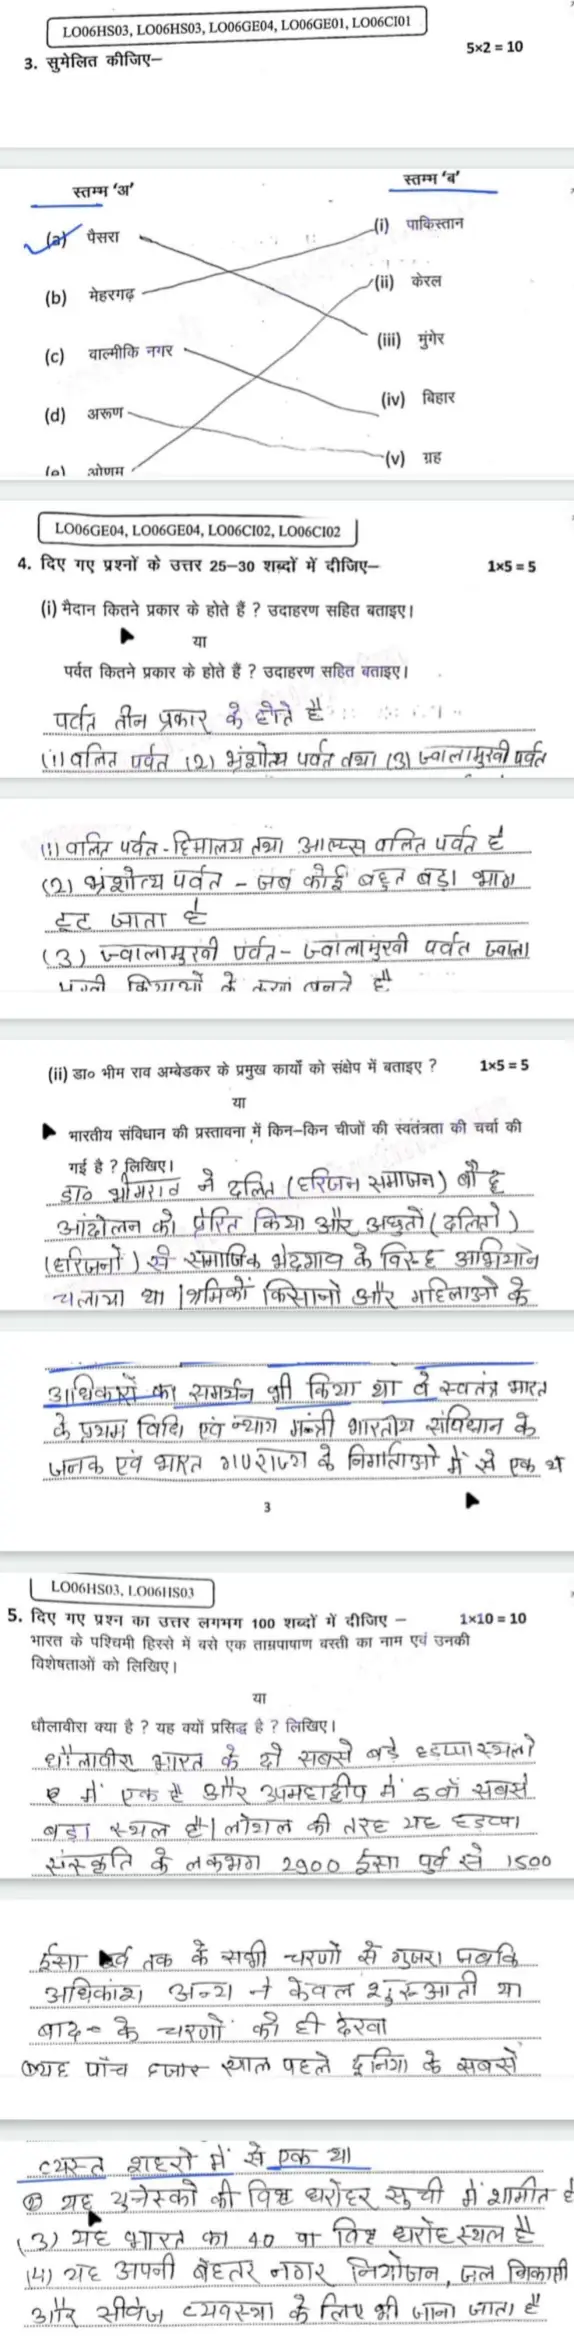 LO06HS03, LO06HS03, LO06GE04, LO06GE01, LO06CI01
3. सुमेलित कीजिए– 5×2 = 10
स्तम्भ 'अ' स्तम्भ 'ब'
(a) पैसरा (i) पाकिस्तान
(b) मेहरगढ़ (ii) केरल
(c) वाल्मीकि नगर (iii) मुंगेर
(d) अरूण (iv) बिहार
(e) ओणम (v) ग्रह
LO06GE04, LO06GE04, LO06CI02, LO06CI02
4. दिए गए प्रश्नों के उत्तर 25–30 शब्दों में दीजिए– 1×5 = 5
(i) मैदान कितने प्रकार के होते हैं ? उदाहरण सहित बताइए।
या
पर्वत कितने प्रकार के होते हैं ? उदाहरण सहित बताइए।
पर्वत तीन प्रकार के होते है
(1) वलित पर्वत (2) भ्रंशोत्थ पर्वत तथा (3) ज्वालामुखी पर्वत
(1) वलित पर्वत - हिमालय तथा आल्प्स वलित पर्वत है
(2) भ्रंशोत्थ पर्वत – जब कोई बहुत बड़ा भाग
टूट जाता है
(3) ज्वालामुखी पर्वत – ज्वालामुखी पर्वत ज्वाला
मुखी क्रियाओं के बनते है
(ii) डा० भीम राव अम्बेडकर के प्रमुख कार्यों को संक्षेप में बताइए ? 1×5 = 5
या
भारतीय संविधान की प्रस्तावना में किन–किन चीजों की स्वतंत्रता की चर्चा की
गई है ? लिखिए।
डा० भीमराव ने दलित (हरिजन समाजन) बौद्ध
आंदोलन को प्रेरित किया और अछुतों (दलितो)
(हरिजनों) से समाजिक भेदभाव के विरुद्ध अभियान
चलाया था |श्रमिकों किसानो और महिलाओ के
अधिकारों का समर्थन भी किया था वे स्वतंत्र भारत
के प्रथम विधि एवं न्याय मंत्री भारतीय संविधान के
जनक एवं भारत गणराज्य के निर्माताओ में से एक थे
3
LO06HS03, LO06HS03
5. दिए गए प्रश्न का उत्तर लगभग 100 शब्दों में दीजिए – 1×10 = 10
भारत के पश्चिमी हिस्से में बसे एक ताम्रपाषाण बस्ती का नाम एवं उनकी
विशेषताओं को लिखिए।
या
धौलावीरा क्या है ? यह क्यों प्रसिद्ध है ? लिखिए।
धौलावीरा भारत के दो सबसे बड़े हडप्पा स्थलो
में एक है और उपमहाद्वीप में 5 वाँ सबसे
बड़ा स्थल है| लोथल की तरह यह हडप्पा
संस्कृति के लकभग 2900 ईसा पुर्व से 1500
ईसा पुर्व तक के सभी चरणों से गुजरा जबकि
अधिकांश अन्य ने केवल शुरूआती या
बाद के चरणों को ही देखा
(1) यह पाँच हजार साल पहले दुनिया के सबसे
व्यस्त शहरो में से एक था
(2) यह युनेस्को की विश्व धरोहर सुची में शामील है
(3) यह भारत का 40 वा विश्व धरोह स्थल है
(4) यह अपनी बेहतर नगर नियोजन, जल निकासी
और सीवेज व्यवस्था के लिए भी जाना जाता है